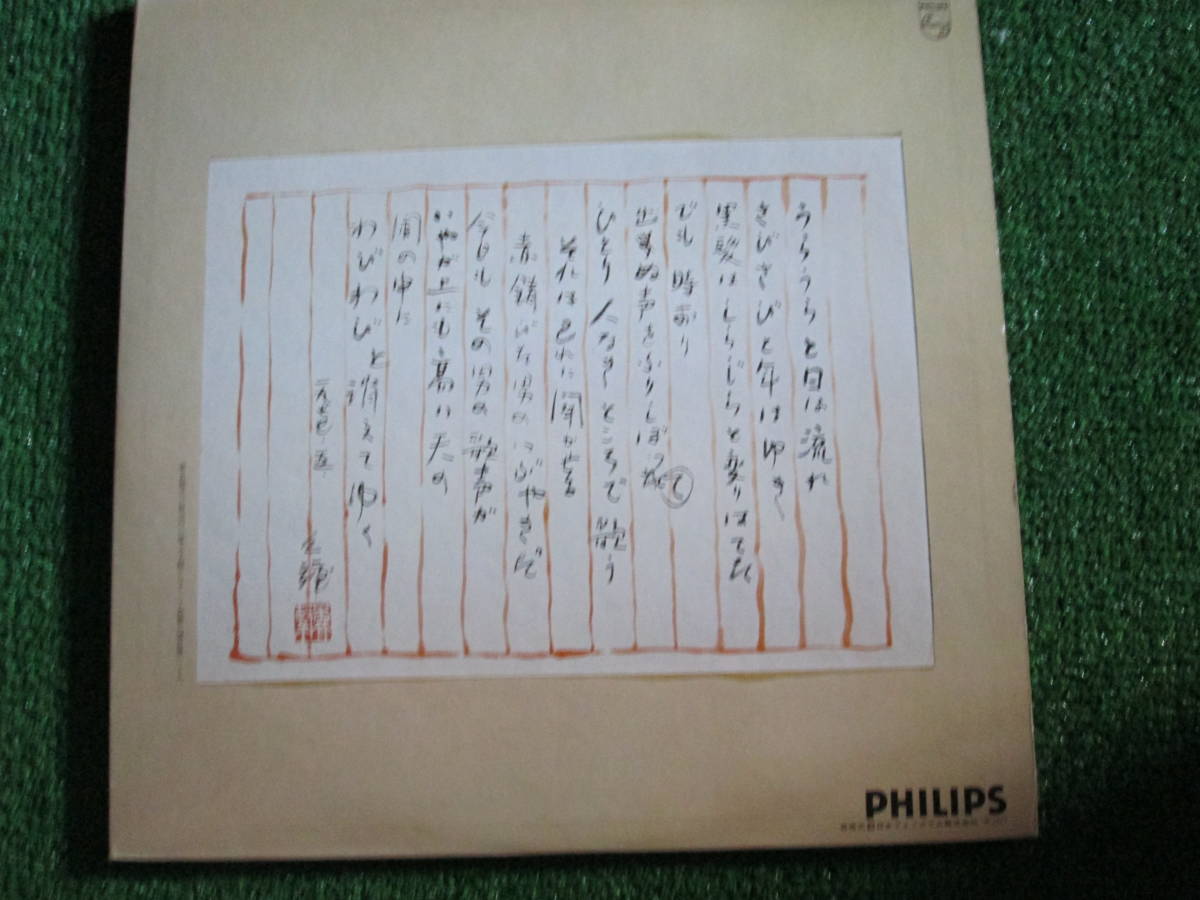 うらうらと日は流れ
さびさびと年はゆく
実髪はしらじらと変りはてた
でも 時おり
出ませぬ声をふりしぼって
ひとり 人なき ところで 歌う
それは己れに聞かせる
赤錆びた男のつぶやきだ
今日も その男の歌声が
いやが上にも高い天の
闇の中に
わびわびと消えてゆく
PHILIPS